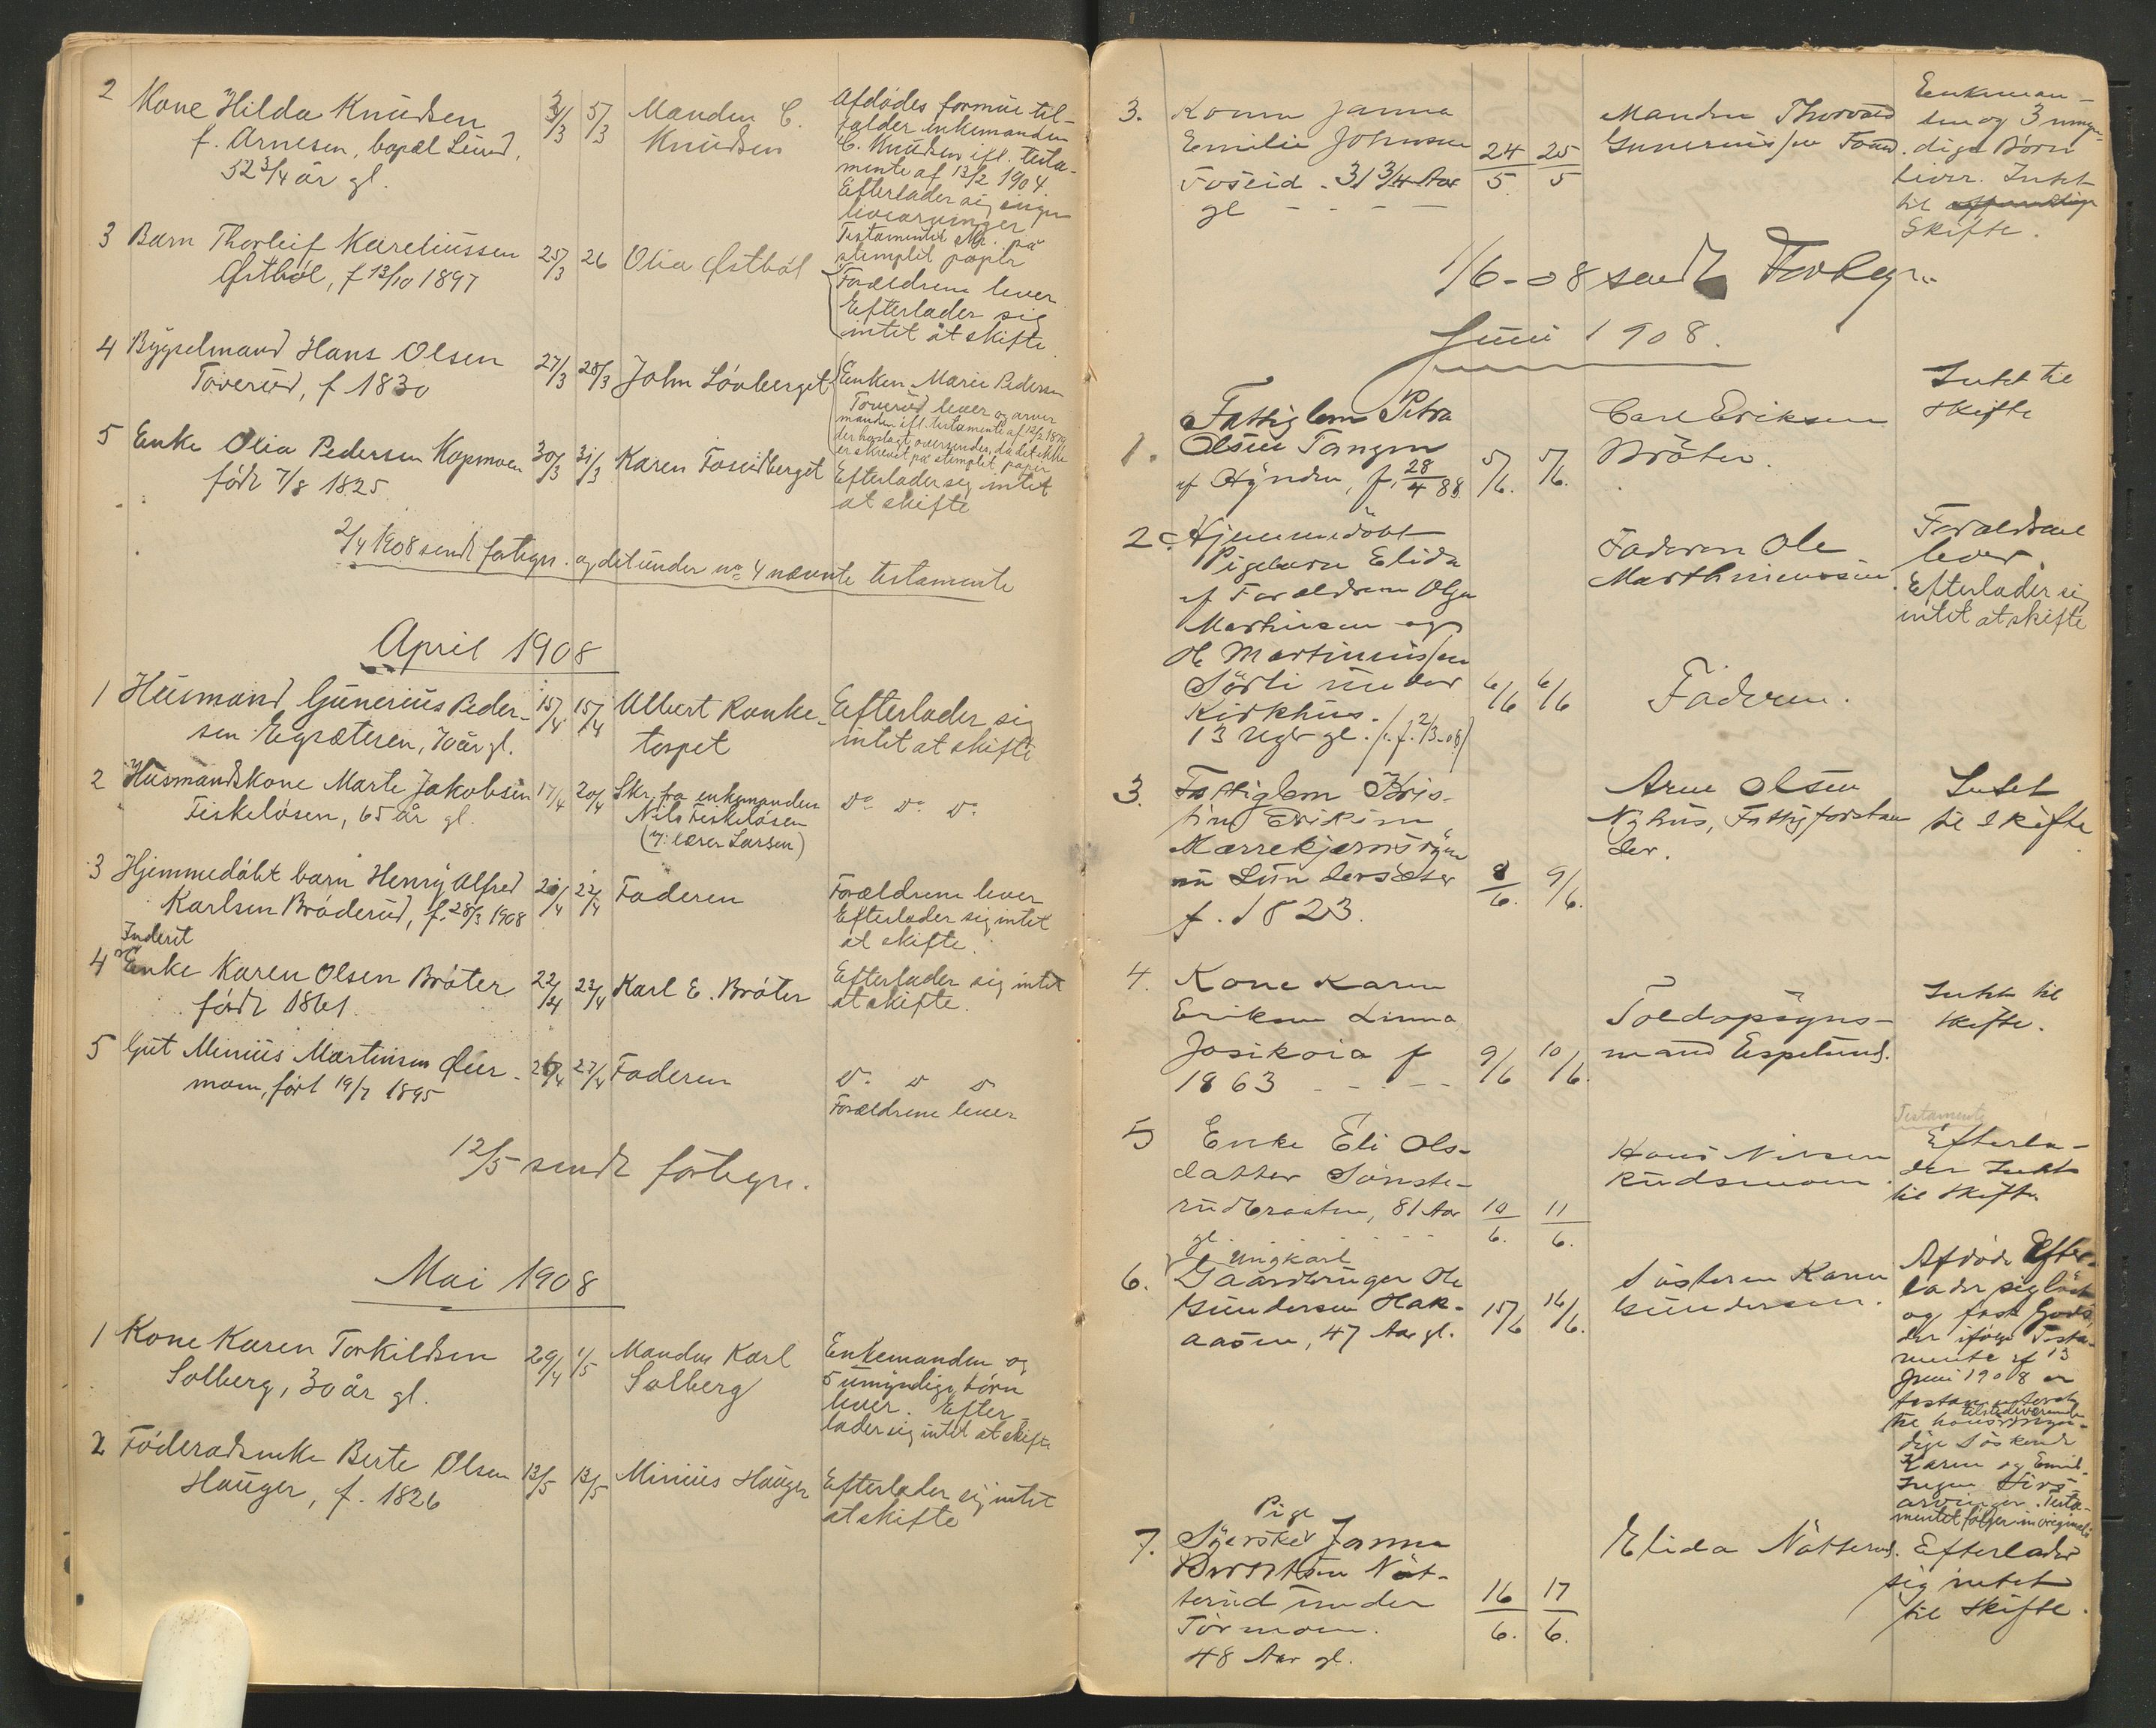 2 Kone Hilda Knudsen 3/3 5/3 Manden C. Afdødes formue til-
f. Arnesen, bopæl Lund, Knudsen falder enkemanden
52 3/4 år gl. C. Knudsen ifl. testa-
mente af 13/2 1904.
Efterlader sig ingen
livsarvinger
Testamentet skr. på
stemplet papir
3 Barn Thorleif Kareliussen 25/3 26 Olia Østbøl Forældrene lever
Østbøl, f 13/10 1897 Efterlader sig
intet at skifte
4 Bygselmand Hans Olsen 27/3 28/3 John Løvberget Enken Marie Pedersen
Toverud, f 1830 Toverud lever og arver
manden ifl. testamente af
der hoslagt oversendes, da det ikke
er skrevet på stemplet papir
5 Enke Olia Pedersen Mopmoen 30/3 31/3 Karen Fosseidberget Efterlader sig intet
født 7/8 1825 at skifte
2/4 1908 sendt fortegn. og det under no 4 nævnte testamente
April 1908
1 Husmand Gunerius Peder- 15/4 15/4 Albert Ranke- Efterlader sig
sen Egsæteren, 70 år gl. torpet intet at skifte
2 Husmandskone Marte Jakobsen 17/4 20/4 Skr. fra enkemanden Do Do Do
Fiskeløsen, 65 år gl. Nils Fiskeløsen
(v. lærer Larsen)
3 Hjemmedøbt barn Henry Alfred 20/4 22/4 Faderen Forældrene lever
Karlsen Brøderud, f. 28/3 1908 Efterlader sig intet
at skifte.
Inderst
4 Enke Karen Olsen Bråter 22/4 22/4 Karl E. Bråter Efterlader sig intet
født 1861. at skifte.
5 Gut Minius Martinsen Øier- 26/4 27/4 Faderen Do Do Do
moen, født 19/7 1895 Forældrene lever
12/5 sendt fortegn.
Mai 1908
1 Kone Karen Torkildsen 29/4 1/5 Manden Karl Enkemanden og
Solberg, 30 år gl. Solberg 5 umyndige børn
lever. Efter-
lader sig intet at skifte
2 Føderadsenke Berte Olsen 13/5 13/5 Minius Hauger Efterlader sig intet
Hauger, f. 1826 at skifte
3. Konen Janna Manden Thorvald Enkeman-
Emilie Johnsen 24/5 25/5 Gunerius/en Fosseid. den og 3 umyn-
Foseid. 31 3/4 Aar dige Børn
gl - - - - lever. Intet
til
Skifte.
1/6-08 sendt Fortegn.
Juni 1908.
Fattiglem Petra Carl Eriksen Intet til
1. Olsen Tangen 5/6. 5/6. Bråten. Skifte
af Hynden, f. 28/4 88.
2. Hjemmedöbt Faderen Ole Forældrene
Pigebarn Elida Marthiniussen lever.
af Forældrene Olga Efterlader sig
Marthinsen og intet at skifte
Ole Martinius/en
Sørli under 6/6 6/6 Faderen.
Kirkhus.
13 Uger gl. (f. 2/3-08)
3. Fattiglem Kris- Arne Olsen Intet
tine Eriksen Nyhus, Fattigforstan- til Skifte
Mærrekjærnsrøgne der.
nu Lundersæter 8/6. 9/6.
f. 1823.
4. Kone Karen Toldopsyns- Intet til
Eriksen Linna mand Espelund. Skifte.
Josikoia f 9/6 10/6.
1863 - - - -
Testamente
5 Enke Eli Ols- Hans Nilsen Efterla-
datter Sönste- Rudsmoen. der Intet
rudbraaten, 81 Aar 10/6. 11/6. til Skifte
gl. - - -
Ungkarl
6. Gaardbruger Ole Søsteren Karen Afdöde Efter-
Gundersen Hak- 15/6 16/6. Gundersen. lader sig löst
aasen, 47 Aar gl. og fast Gods,
der ifølge Testa-
mente af 13
Juni 1908 er
til hans
tilstedeværende
dige Söskende
Karen og Emil.
Ingen Livs-
arvinger. Testa-
mentet følger in originali
Pige
7. Syerske Janna Elida Nötterud. Efterlader
Berntsen Nöt- sig intet
terud under 16/6. 17/6. til Skifte.
Törmoen.
48 Aar gl.